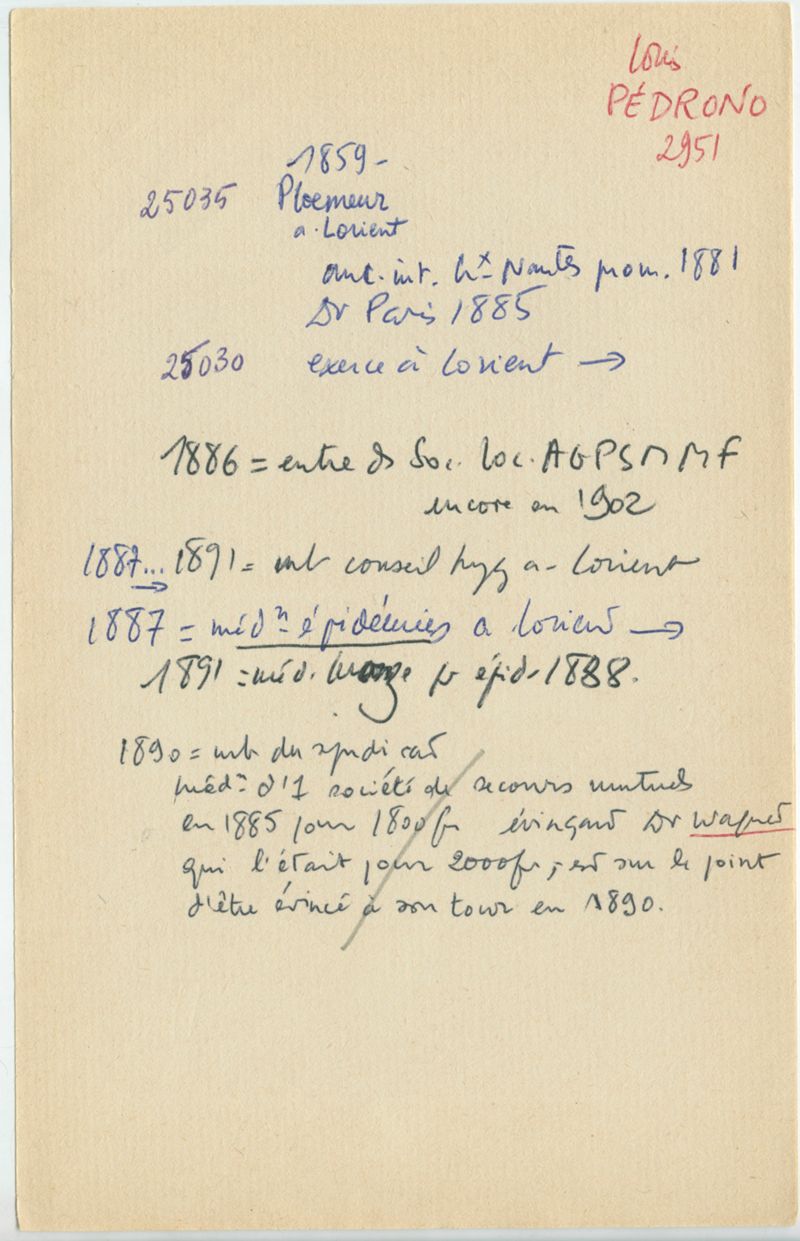 Louis
PÉDRONO
2951
1859 -
25035 Ploemeur
a. Lorient
anc. int. hx Nantes prom. 1881
Dr Paris 1885
25030 exerce à Lorient →
1886 = entre ds Soc. loc. AGPSMMF
encore en 1902
1887... 1891 = mb conseil hyg a - Lorient
→
1887 = médn épidémies a Lorient →
1891 = méd. pr épid. 1888.
1890 = mb du syndicat
médn d'1 société de secours mutuels
en 1885 pour 1800fr évinçant Dr Wagner
qui l'était pour 2000fr ; est sur le point
d'être évincé à son tour en 1890.